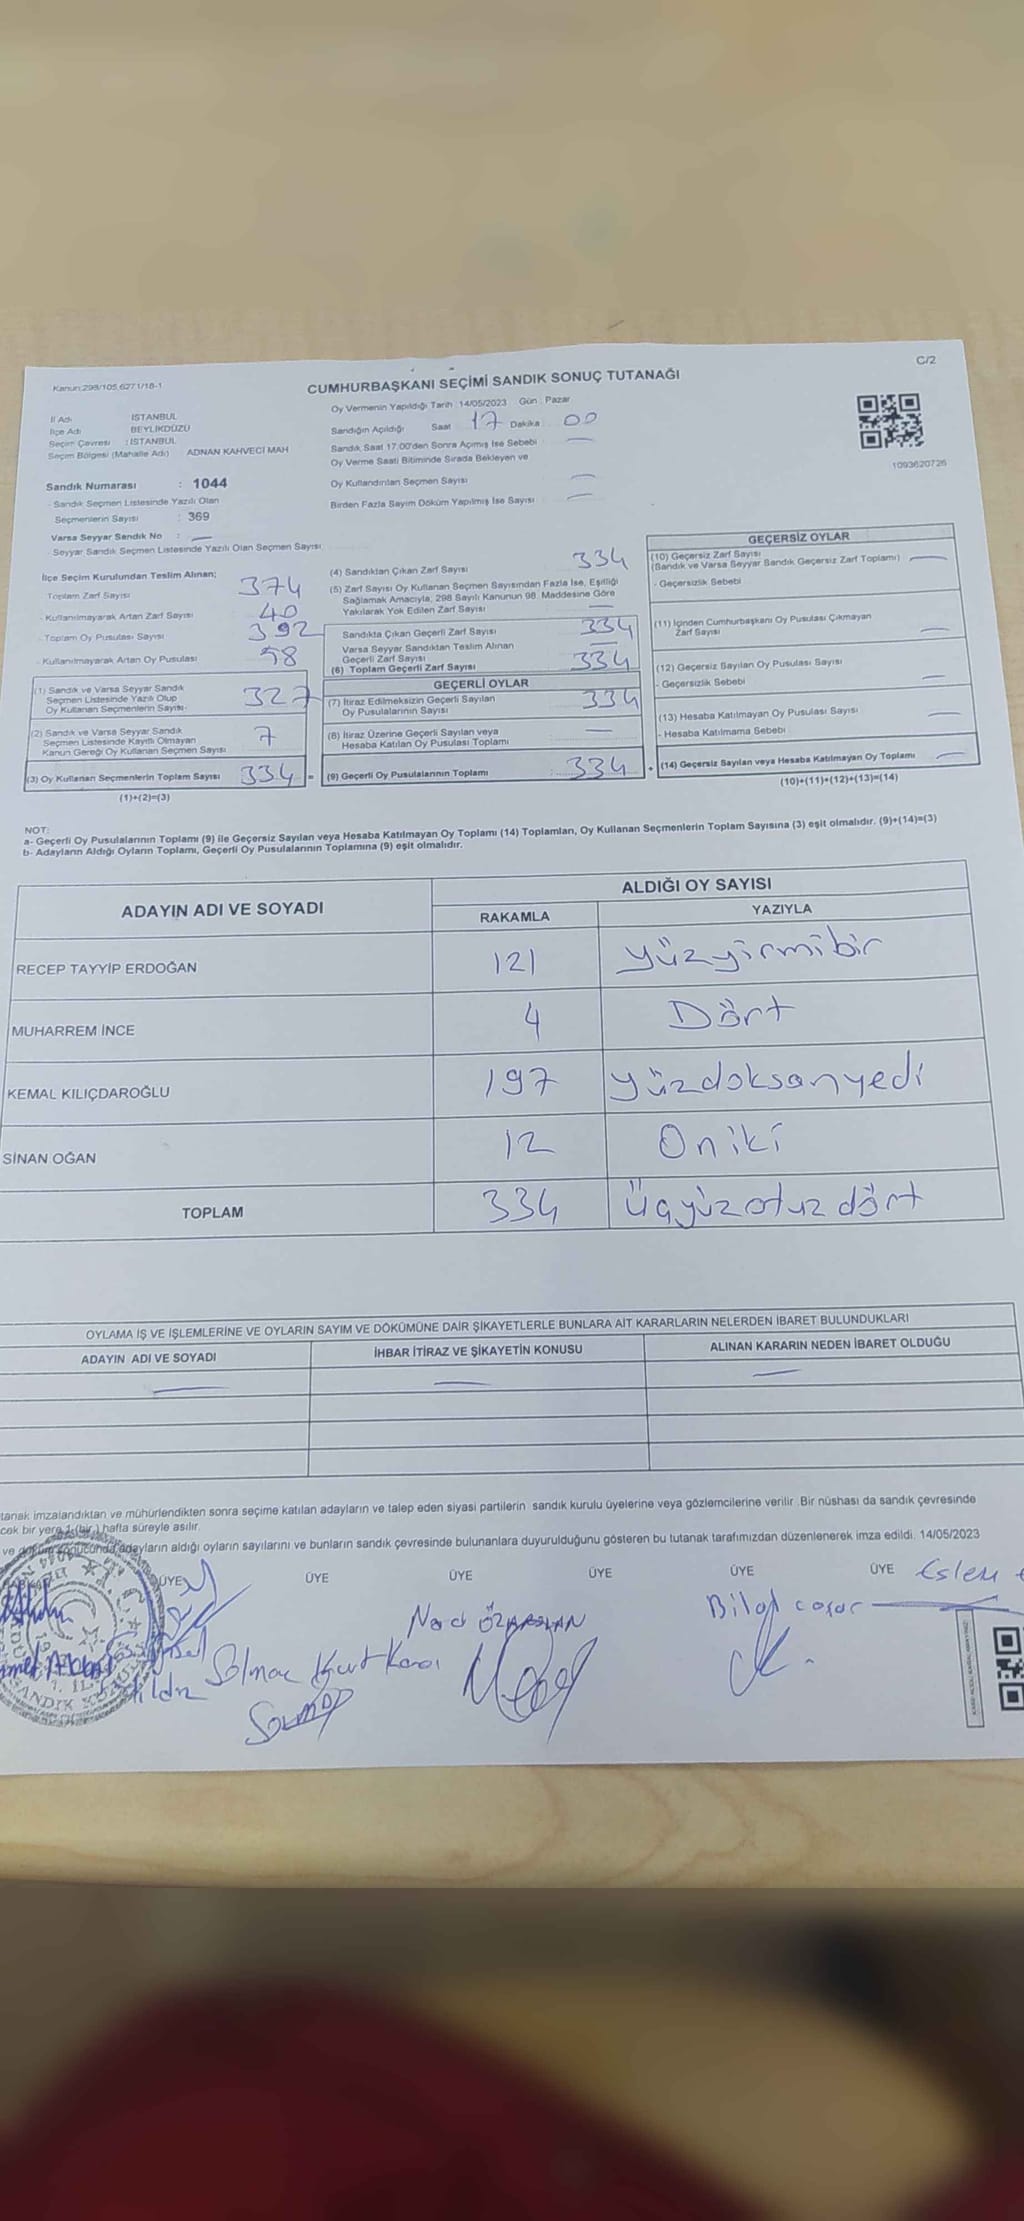 C/2
Kanun:298/105,627.1/18-1
CUMHURBAŞKANI SEÇİMİ SANDIK SONUÇ TUTANAĞI
İl Adı İSTANBUL
İlçe Adı BEYLİKDÜZÜ
Seçim Çevresi : İSTANBUL
Seçim Bölgesi (Mahalle Adı) ADNAN KAHVECİ MAH
Sandık Numarası : 1044
- Sandık Seçmen Listesinde Yazılı Olan
Seçmenlerin Sayısı : 369
Varsa Seyyar Sandık No : —
- Seyyar Sandık Seçmen Listesinde Yazılı Olan Seçmen Sayısı
Oy Vermenin Yapıldığı Tarih :14/05/2023 Gün : Pazar
Sandığın Açıldığı Saat 17 Dakika : 00
Sandık Saat 17.00'den Sonra Açmış İse Sebebi : —
Oy Verme Saati Bitiminde Sırada Bekleyen ve
Oy Kullandırılan Seçmen Sayısı —
Birden Fazla Sayım Döküm Yapılmış İse Sayısı —
1093620726
İlçe Seçim Kurulundan Teslim Alınan;
Toplam Zarf Sayısı 374
- Kullanılmayarak Artan Zarf Sayısı 40
- Toplam Oy Pusulası Sayısı 392
- Kullanılmayarak Artan Oy Pusulası 58
(1) Sandık ve Varsa Seyyar Sandık
Seçmen Listesinde Yazılı Olup
Oy Kullanan Seçmenlerin Sayısı 327
(2) Sandık ve Varsa Seyyar Sandık
Seçmen Listesinde Kayıtlı Olmayan
Kanun Gereği Oy Kullanan Seçmen Sayısı 7
(3) Oy Kullanan Seçmenlerin Toplam Sayısı 334 =
(1)+(2)=(3)
(4) Sandıktan Çıkan Zarf Sayısı 334
(5) Zarf Sayısı Oy Kullanan Seçmen Sayısından Fazla İse, Eşitliği
Sağlamak Amacıyla, 298 Sayılı Kanunun 98. Maddesine Göre
Yakılarak Yok Edilen Zarf Sayısı —
Sandıkta Çıkan Geçerli Zarf Sayısı 334
Varsa Seyyar Sandıktan Teslim Alınan
Geçerli Zarf Sayısı
(6) Toplam Geçerli Zarf Sayısı 334
GEÇERLİ OYLAR
(7) İtiraz Edilmeksizin Geçerli Sayılan
Oy Pusulalarının Sayısı 334
(8) İtiraz Üzerine Geçerli Sayılan veya
Hesaba Katılan Oy Pusulası Toplamı —
(9) Geçerli Oy Pusulalarının Toplamı 334 +
GEÇERSİZ OYLAR
(10) Geçersiz Zarf Sayısı
(Sandık ve Varsa Seyyar Sandık Geçersiz Zarf Toplamı) —
- Geçersizlik Sebebi
(11) İçinden Cumhurbaşkanı Oy Pusulası Çıkmayan
Zarf Sayısı —
(12) Geçersiz Sayılan Oy Pusulası Sayısı
- Geçersizlik Sebebi —
(13) Hesaba Katılmayan Oy Pusulası Sayısı —
- Hesaba Katılmama Sebebi
(14) Geçersiz Sayılan veya Hesaba Katılmayan Oy Toplamı —
(10)+(11)+(12)+(13)=(14)
NOT:
a- Geçerli Oy Pusulalarının Toplamı (9) ile Geçersiz Sayılan veya Hesaba Katılmayan Oy Toplamı (14) Toplamları, Oy Kullanan Seçmenlerin Toplam Sayısına (3) eşit olmalıdır. (9)+(14)=(3)
b- Adayların Aldığı Oyların Toplamı, Geçerli Oy Pusulalarının Toplamına (9) eşit olmalıdır.
ADAYIN ADI VE SOYADI ALDIĞI OY SAYISI
RAKAMLA YAZIYLA
RECEP TAYYİP ERDOĞAN 121 yüzyirmibir
MUHARREM İNCE 4 Dört
KEMAL KILIÇDAROĞLU 197 yüzdoksanyedi
SİNAN OĞAN 12 Oniki
TOPLAM 334 Üçyüzotuzdört
OYLAMA İŞ VE İŞLEMLERİNE VE OYLARIN SAYIM VE DÖKÜMÜNE DAİR ŞİKAYETLERLE BUNLARA AİT KARARLARIN NELERDEN İBARET BULUNDUKLARI
ADAYIN ADI VE SOYADI İHBAR İTİRAZ VE ŞİKAYETİN KONUSU ALINAN KARARIN NEDEN İBARET OLDUĞU
— — —
tanak imzalandıktan ve mühürlendikten sonra seçime katılan adayların ve talep eden siyasi partilerin sandık kurulu üyelerine veya gözlemcilerine verilir. Bir nüshası da sandık çevresinde
cek bir yere 1 (bir) hafta süreyle asılır.
adayların aldığı oyların sayılarını ve bunların sandık çevresinde bulunanlara duyurulduğunu gösteren bu tutanak tarafımızdan düzenlenerek imza edildi. 14/05/2023
ÜYE ÜYE ÜYE ÜYE ÜYE ÜYE
Bilal
SANDIK